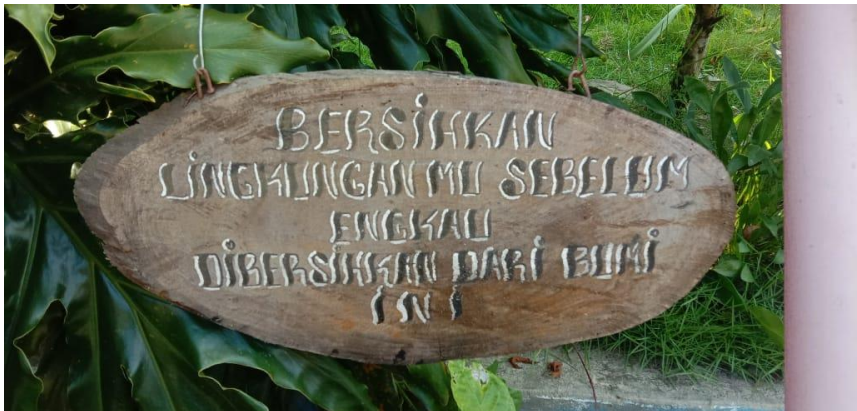 BERSiHKAN
LiNGKUNGAN MU SEBELUM
ENGKAU
DiBERSiHKAN DARi BUMi
iNi